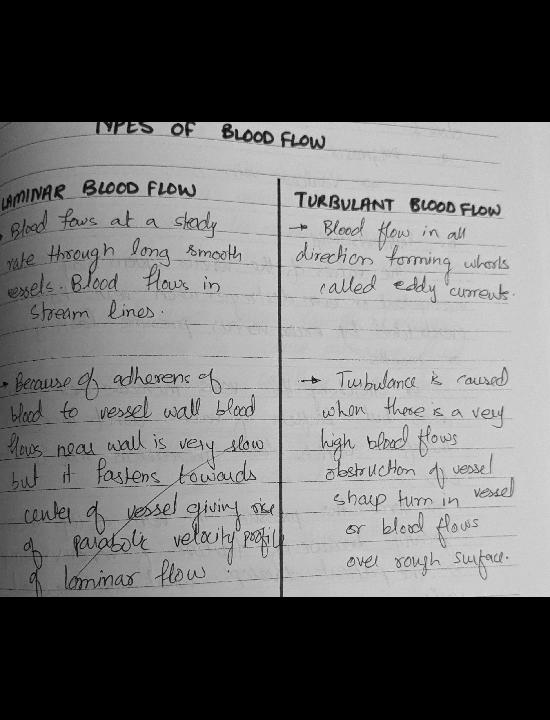 TYPES OF BLOOD FLOW
LAMINAR BLOOD FLOW
Blood fows at a steady
rate through long smooth
essels. Blood flows in
stream lines.
Because of adherens of
blood to vessel wall blood
flows near wall is very slow
but it fastens towards
center of vessel giving rise
of parabolic velocity profile
of laminar flow.
TURBULANT BLOOD FLOW
→ Blood flow in all
direction forming whorls
called eddy currents.
→ Turbulance is caused
when there is a very
high blood flows
obstruction of vessel
sharp turn in vessel
or blood flows
over rough surface.